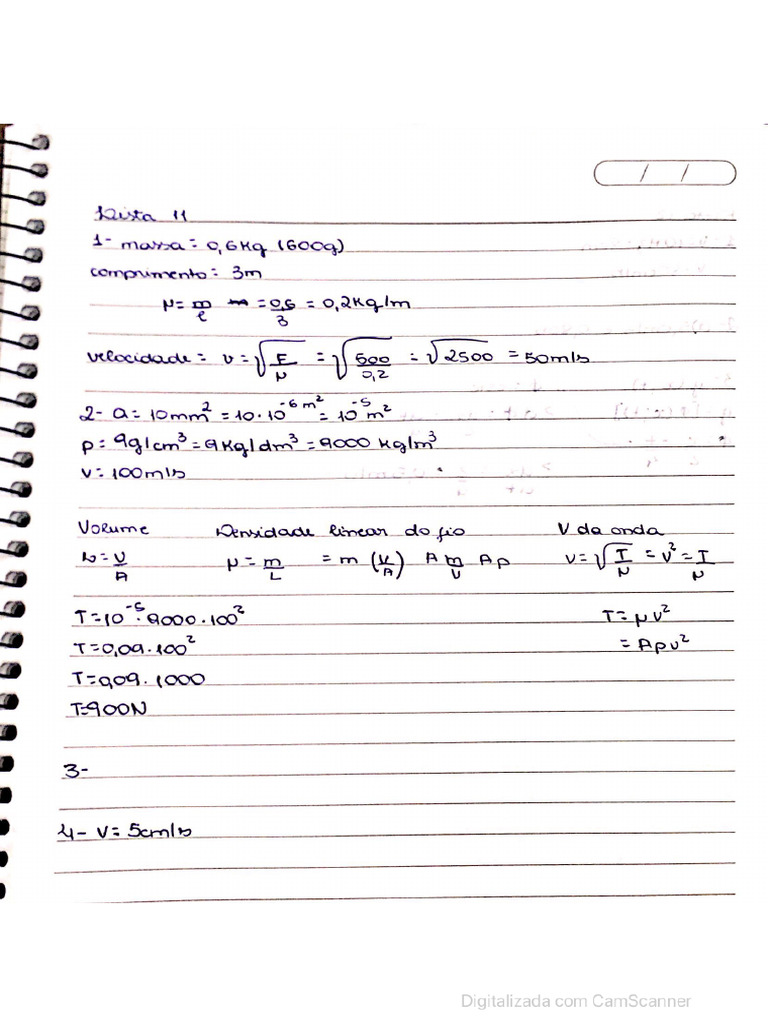 / /
Lista 11
1- massa = 0,6Kg (600g)
comprimento = 3m
μ = m/l = 0,6/3 = 0,2Kg/m
velocidade = v = √(F/μ) = √(500/0,2) = √2500 = 50m/s
2- a = 10mm² = 10·10⁻⁶m² = 10⁻⁵m²
ρ = 9g/cm³ = 9Kg/dm³ = 9000 Kg/m³
v = 100m/s
Volume Densidade linear do fio V da onda
L = V/A μ = m/L = m (V/A) A m/V Aρ v = √(T/μ) = v² = T/μ
T = 10⁻⁵·9000·100² T = μv²
T = 0,09·100² = Aρv²
T = 0,09·1000
T = 900N
3-
4- V = 5cm/s
Digitalizada com CamScanner